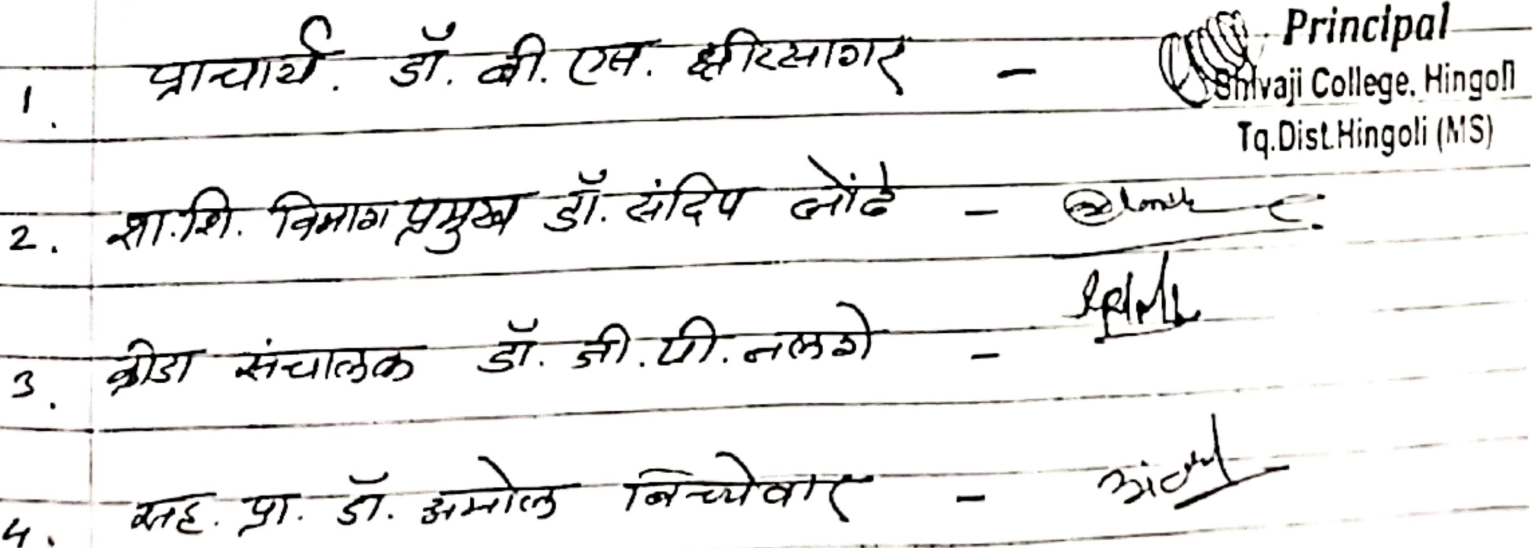 1. प्राचार्य. डॉ. बी. एस. क्षीरसागर -
Principal
Shivaji College, Hingoli
Tq.Dist.Hingoli (MS)
2. शा.शि. विभाग प्रमुख डॉ. संदिप लोंढे -
3. क्रीडा संचालक डॉ. जी. पी. नलगे -
4. सह. प्रा. डॉ. अमोल -